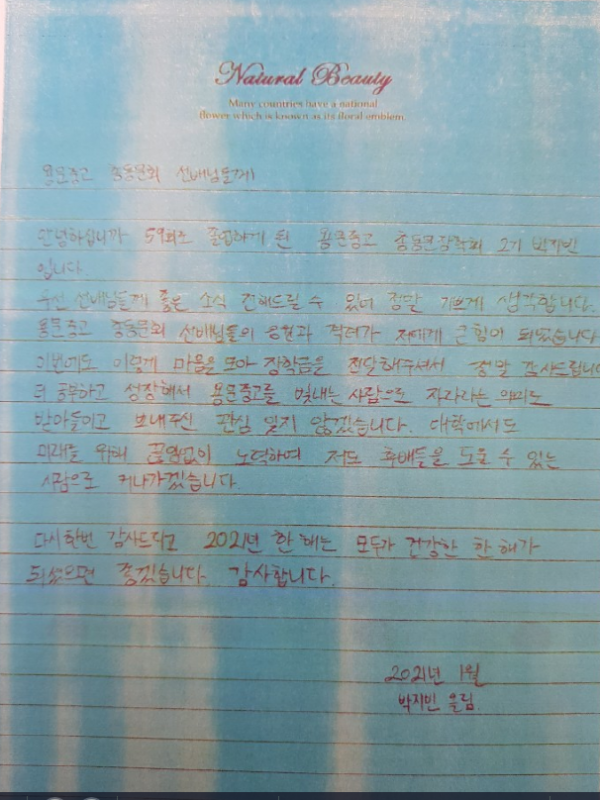 Natural Beauty
Many countries have a national
flower which is known as its floral emblem.
용문중고 총동문회 선배님들께!
안녕하십니까 59회로 졸업하게 된 용문중고 총동문장학회 2기 박지빈
입니다.
우선 선배님들께 좋은 소식 전해드릴 수 있어 정말 기쁘게 생각합니다.
용문중고 총동문회 선배님들의 응원과 격려가 저에게 큰힘이 되었습니다
이번에도 이렇게 마음을 모아 장학금을 전달해주셔서 정말 감사드립니다
더 공부하고 성장해서 용문중고를 빛내는 사람으로 자라라는 의미로
받아들이고 보내주신 관심 잊지 않겠습니다. 대학에서도
미래를 위해 끊임없이 노력하여 저도 후배들을 도울 수 있는
사람으로 커나가겠습니다.
다시한번 감사드리고 2021년 한 해는 모두가 건강한 한 해가
되었으면 좋겠습니다. 감사합니다.
2021년 1월
박지빈 올림.